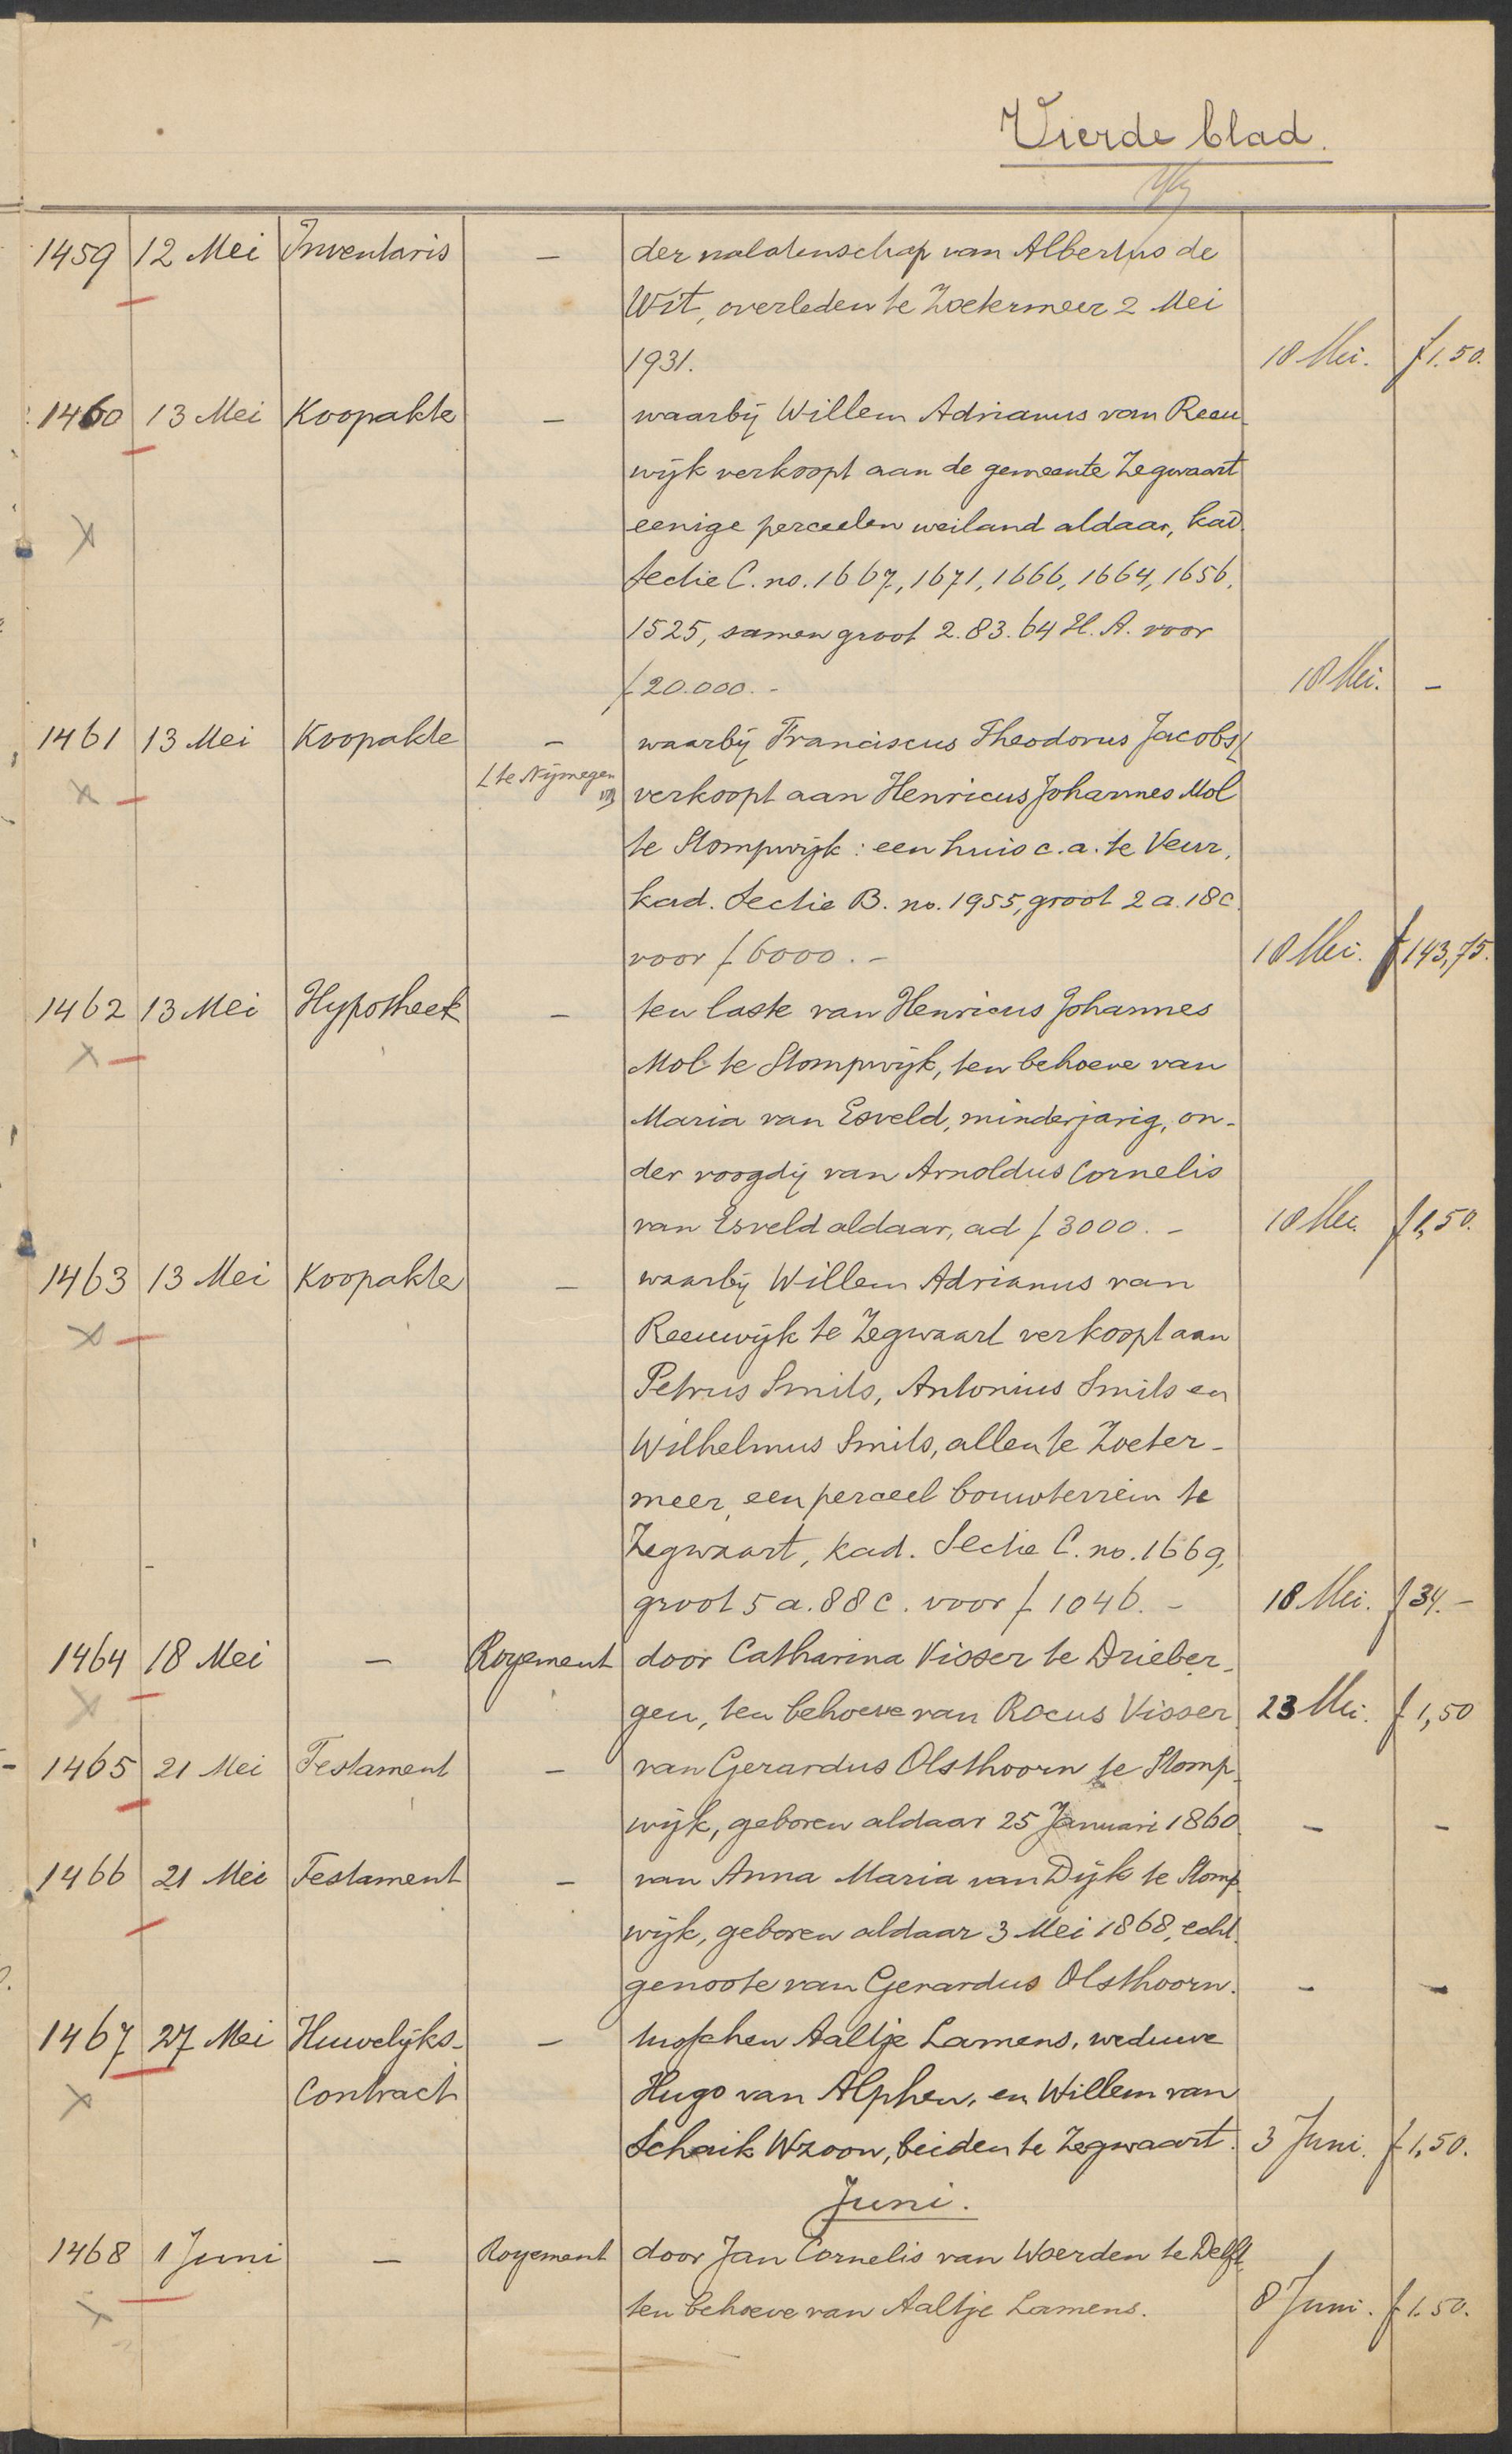 Vierde blad.
1459 12 Mei Inventaris — der nalatenschap van Albertus de
Wit, overleden te Zoetermeer 2 Mei
1931. 18 Mei. f 1.50.
1460 13 Mei Koopakte — waarbij Willem Adrianus van Reeu-
wijk verkoopt aan de gemeente Zegwaart
eenige perceelen weiland aldaar, kad.
sectie C. no. 1667, 1671, 1666, 1664, 1656,
1525, samen groot 2.83.64 H.A. voor
f 20.000.- 18 Mei. —
1461 13 Mei Koopakte — waarbij Franciscus Theodorus Jacobs
te Nijmegen verkoopt aan Henricus Johannes Mol
te Stompwijk: een huis c.a. te Veur,
kad. Sectie B. no. 1955, groot 2 a. 18 c.
voor f 6000.- 18 Mei. f 143,75.
1462 13 Mei Hypotheek — ten laste van Henricus Johannes
Mol te Stompwijk, ten behoeve van
Maria van Esveld, minderjarig, on-
der voogdij van Arnoldus Cornelis
van Esveld aldaar, ad f 3000.- 18 Mei. f 1,50.
1463 13 Mei Koopakte — waarbij Willem Adrianus van
Reeuwijk te Zegwaart verkoopt aan
Petrus Smits, Antonius Smits en
Wilhelmus Smits, allen te Zoeter-
meer, een perceel bouwterrein te
Zegwaart, kad. Sectie C. no. 1669,
groot 5 a. 88 c. voor f 1046.- 18 Mei. f 34.-
1464 18 Mei — Royement door Catharina Visser te Drieber-
gen, ten behoeve van Rocus Visser. 23 Mei. f 1,50
1465 21 Mei Testament — van Gerardus Olsthoorn te Stomp-
wijk, geboren aldaar 25 Januari 1860. — —
1466 21 Mei Testament — van Anna Maria van Dijk te Stomp-
wijk, geboren aldaar 3 Mei 1868, echt-
genoote van Gerardus Olsthoorn. — —
1467 27 Mei Huwelijks- — tusschen Aaltje Lamens, weduwe
Contract Hugo van Alphen, en Willem van
Schaik Wzoon, beiden te Zegwaart. 3 Juni. f 1,50.
Juni.
1468 1 Juni — Royement door Jan Cornelis van Woerden te Delft,
ten behoeve van Aaltje Lamens. 8 Juni. f 1.50.